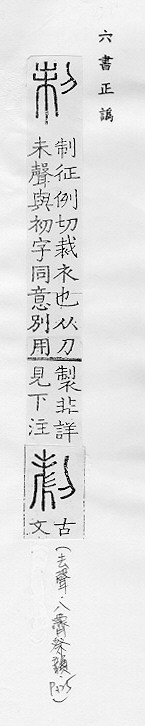 六書正譌
制征例切裁衣也从刀
未聲與初字同意別用
製非詳
見下注
古
文
(去聲·八霽祭韻·P225)